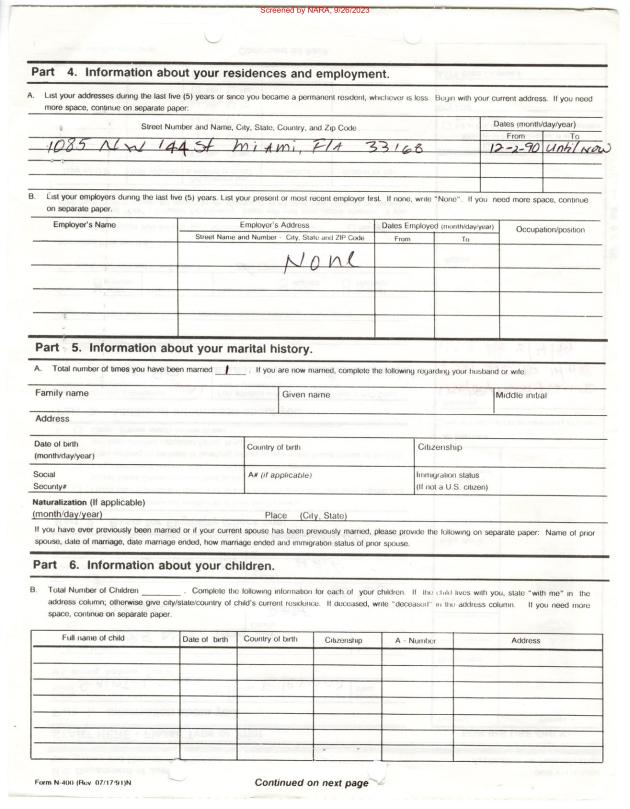 Screened by NARA, 9/26/2023
Part 4. Information about your residences and employment.
A. List your addresses during the last five (5) years or since you became a permanent resident, whichever is less. Begin with your current address. If you need
more space, continue on separate paper:
Street Number and Name, City, State, Country, and Zip Code
Dates (month/day/year)
From To
1085 NW 144 St Miami, FLA 33168 12-2-90 Until Now
B. List your employers during the last five (5) years. List your present or most recent employer first. If none, write "None". If you need more space, continue
on separate paper.
Employer's Name
Employer's Address
Street Name and Number - City, State and ZIP Code
Dates Employed (month/day/year)
From To
Occupation/position
None
Part 5. Information about your marital history.
A. Total number of times you have been married 1 . If you are now married, complete the following regarding your husband or wife.
Family name Given name Middle initial
Address
Date of birth
(month/day/year)
Country of birth
Citizenship
Social
Security#
A# (if applicable)
Immigration status
(If not a U.S. citizen)
Naturalization (If applicable)
(month/day/year) Place (City, State)
If you have ever previously been married or if your current spouse has been previously married, please provide the following on separate paper: Name of prior
spouse, date of marriage, date marriage ended, how marriage ended and immigration status of prior spouse.
Part 6. Information about your children.
B. Total Number of Children ________ . Complete the following information for each of your children. If the child lives with you, state "with me" in the
address column; otherwise give city/state/country of child's current residence. If deceased, write "deceased" in the address column. If you need more
space, continue on separate paper.
Full name of child Date of birth Country of birth Citizenship A - Number Address
Form N-400 (Rev. 07/17/91)N Continued on next page